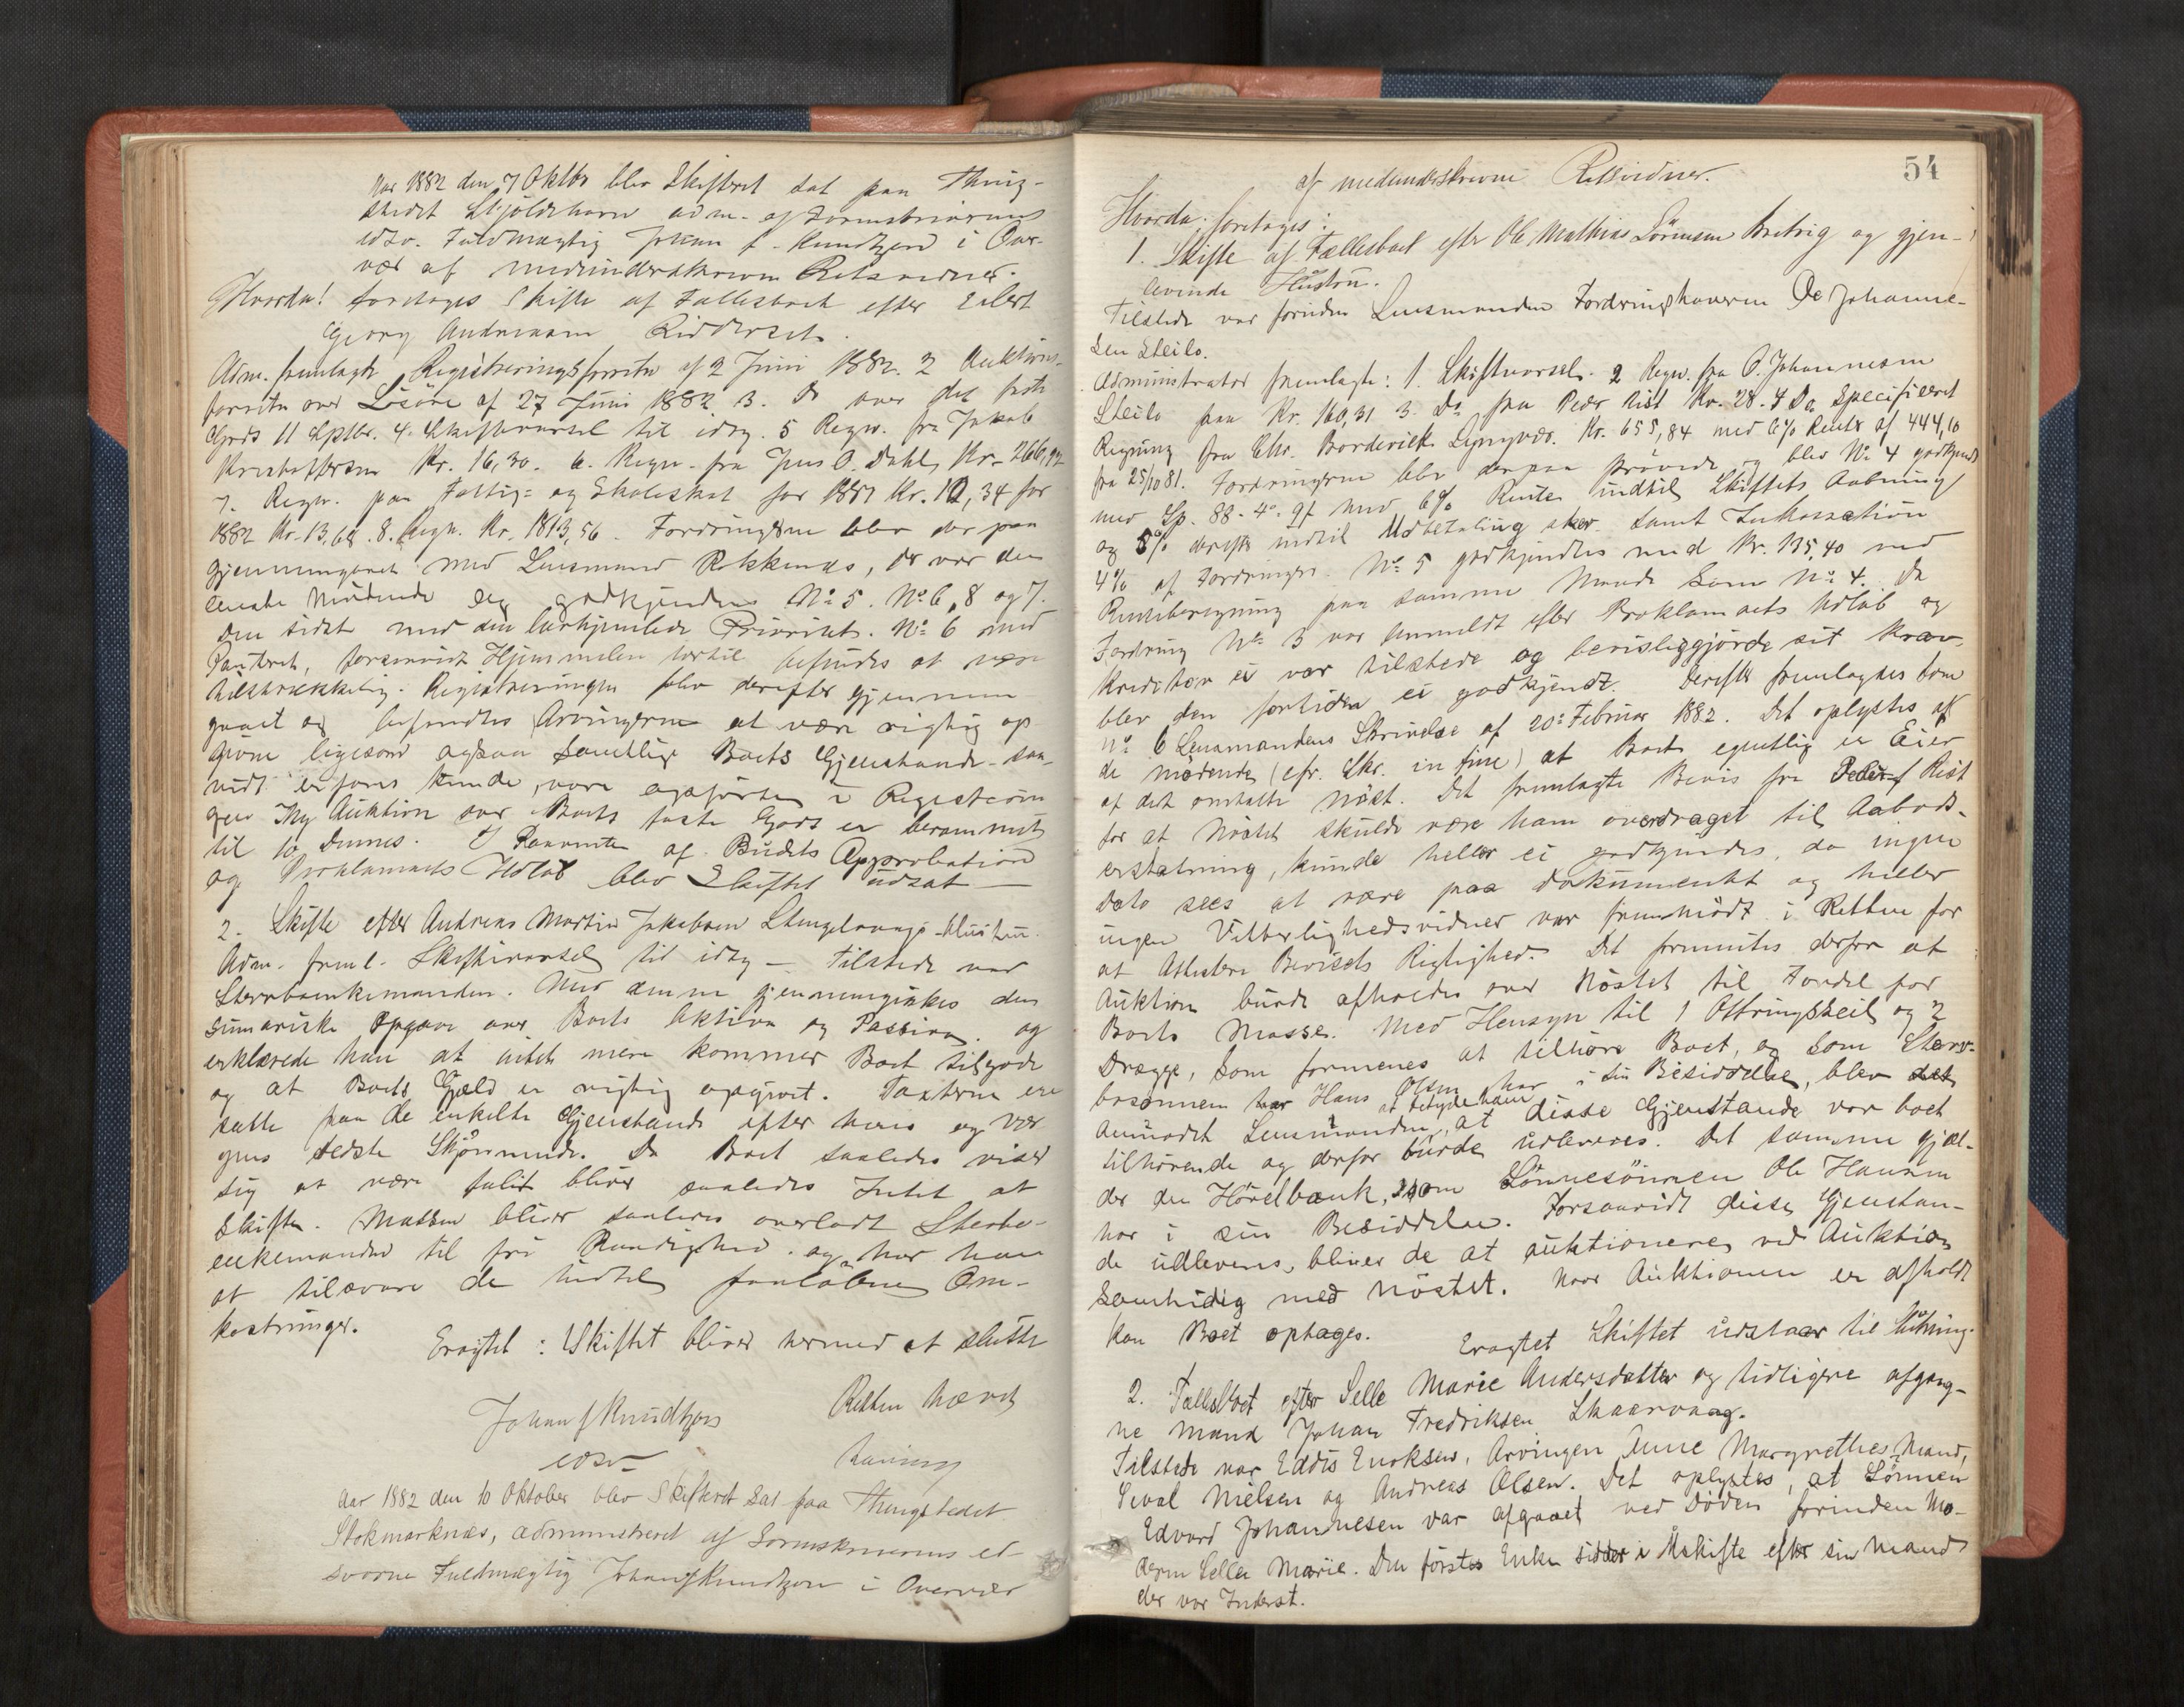 Aar 1882 den 7 Oktbr blev Skifteret sat paa Thing-
stedet Skjoldehavn adm. af Sorenskriverens
edsv. Fuldmægtig Johan f. Knudtzon i Over-
vær af medunderskrevne Retsvidner.
Hvorda! foretoges Skifte af Fællesboet efter Eilert
Georg Andreasen Ridderset.
Adm. fremlagte Registreringsforretn af 2 Juni 1882. 2 Auktions-
forretn over Løsøre af 27 Juni 1882 3. Do over det faste
Gods 11 Septbr. 4. Skiftevarsel til idag. 5 Regn. fra Jakob
Kristoffersen Kr. 16,30. 6. Regn. fra Jens O. Dahl Kr. 266,92
7. Regn. paa Fattig- og Skoleskat for 1881 Kr. 12,34 for
1882 Kr. 13,68. 8. Regn. Kr. 1813,56. Fordringerne blev der paa
gjennemgaaet med Lensmand, der var den
eneste Mødende og godkjendes No 5. No 6, 8 og 7.
Den sidste med den lovhjemlede Prioritet. No 6 med
Panteret, forsaavidt Hjemmelen hertil befindes at være
tilstrækkelig. Registreringen blev derefter gjennem
gaaet og befandtes Arvingerne at være rigtig op
givne ligesom ogsaa samtlige Boets Gjenstande saa-
vidt erfares kunde, vare opførte i Registrerin
gen Ny Auktion over Boets faste Gods er berammet
til 10 Dennes. I Paavente af Budets Approbation
og Proklamaets Udløb blev Skiftet udsat —
2. Skifte efter Andreas Martin Jakobsen Stenglevaags Hustru.
Adm. freml. Skiftevarsel til idag — Tilstede var
Stervboenkemanden. Med denne gjennemgikkes den
sumariske Opgave over Boets Aktiva og Passiva, og
erklærede han at intet mere kommer Boet tilgode
og at Boets Gjæld er rigtig opgivet. Taxterne ere
satte paa de enkelte Gjenstande efter hans og Vær
gens bedste Skjønnende. Da Boet saaledes viser
sig at være falit bliver saaledes Intet at
skifte. Massen bliver saaledes overladt Sterbo-
enkemanden til fri Raadighed og har han
at tilsvare de hidtil paaløbne Om-
kostninger.
Eragtet: Skiftet bliver hermed at slutte
Retten hævet
Johan f Knudtzon
edsv
Aar 1882 den 10 Oktober blev Skifteret sat paa Thingstedet
Stokmarknæs, administreret af Sorenskriverens ed-
svorne Fuldmægtig Johan f Knudtzon i Overvær
54
af medunderskrevne Retsvidner.
Hvorda foretoges:
1. Skifte af Fællesboet efter Ole Mathias Sørensen Bretvig og gjen-
levende Hustru.
Tilstede var foruden Lensmanden Fordringshaveren Ole Johanne-
sen Steilo.
Administrator fremlagte: 1. Skiftevarsel. 2 Regn. fra O. Johannesen
Steilo paa Kr. 160,31 3. Do fra Peder Rist Kr. 28. 4 Do Specificeret
Regning fra Chr. Borderick Lyngvær. Kr. 655,84 med 6% Rente af 444,10
fra 25/10 81. Fordringerne blev derpaa prøvede og blev No 4 godkjendt
med Sp. 88-4-9 f med 6% Rente indtil Skiftets Aabning
og 5% derefter indtil Udbetaling sker samt Inkassation
4% af Fordringen. No 5 godkjendtes med Kr. 135,40 med
Renteberegning paa samme Maade som No 4. Da
Fordring No 3 var anmeldt efter Proklamaets Udløb og
Kreditor ei var tilstede og bevisliggjorde sit Krav
blev den fortiden ei godkjendt. Derefter fremlagdes som
No 6 Lensmandens Skrivelse af 20de Februar 1882. Det oplystes af
de mødende (cfr. Skr. in fine) at Boet egentlig er Eier
af det omhalte Nøst. Det fremlagte Bevis fra Peder f Rist
for at Nøstet skulde være ham overdraget til Aabods-
erstatning, kunde heller ei godkjendes, da ingen
Dato sees at være paa Dokumentet og heller
ingen Vitterlighedsvidner var fremmødt i Retten for
at Attestere Bevisets Rigtighed. Det formentes derfor at
Auktion burde afholdes over Nøstet til Fordel for
Boets Masse. Med Hensyn til 1 Ottringsseil og 2
Drægge, som formenes at tilhøre Boet, og som Sterv-
bosønnen har Hans Olsen har i sin Besiddelse, blev det
anmodet Lensmanden at betyde ham, at disse Gjenstande var boet
tilhørende og derfor burde udleveres. Det samme gjæl-
der den Høvelbænk, som Sønnesønnen Ole Hansen
har i sin Besiddelse. Forsaavidt disse Gjenstan-
de udleveres, bliver de at auktionere ved Auktion
samtidig med Nøstet. Naar Auktionen er afholdt
kan Boet optages.
Eragtet Skiftet udstaar til Slutning.
2. Fællesboet efter Selle Marie Andersdatter og tidligere afgang-
ne Mand Johan Fredriksen Skaarvaag.
Tilstede var Eddis Enoksen, Arvingen Anne Margrethes Mand,
Sival Nielsen og Andreas Olsen. Det oplystes, at Sønnen
Edvard Johannesen var afgaaet ved Døden forinden Mo-
deren Selle Marie. Den førstes Enke sidder i Uskifte efter sin Mand
der var Inderst.